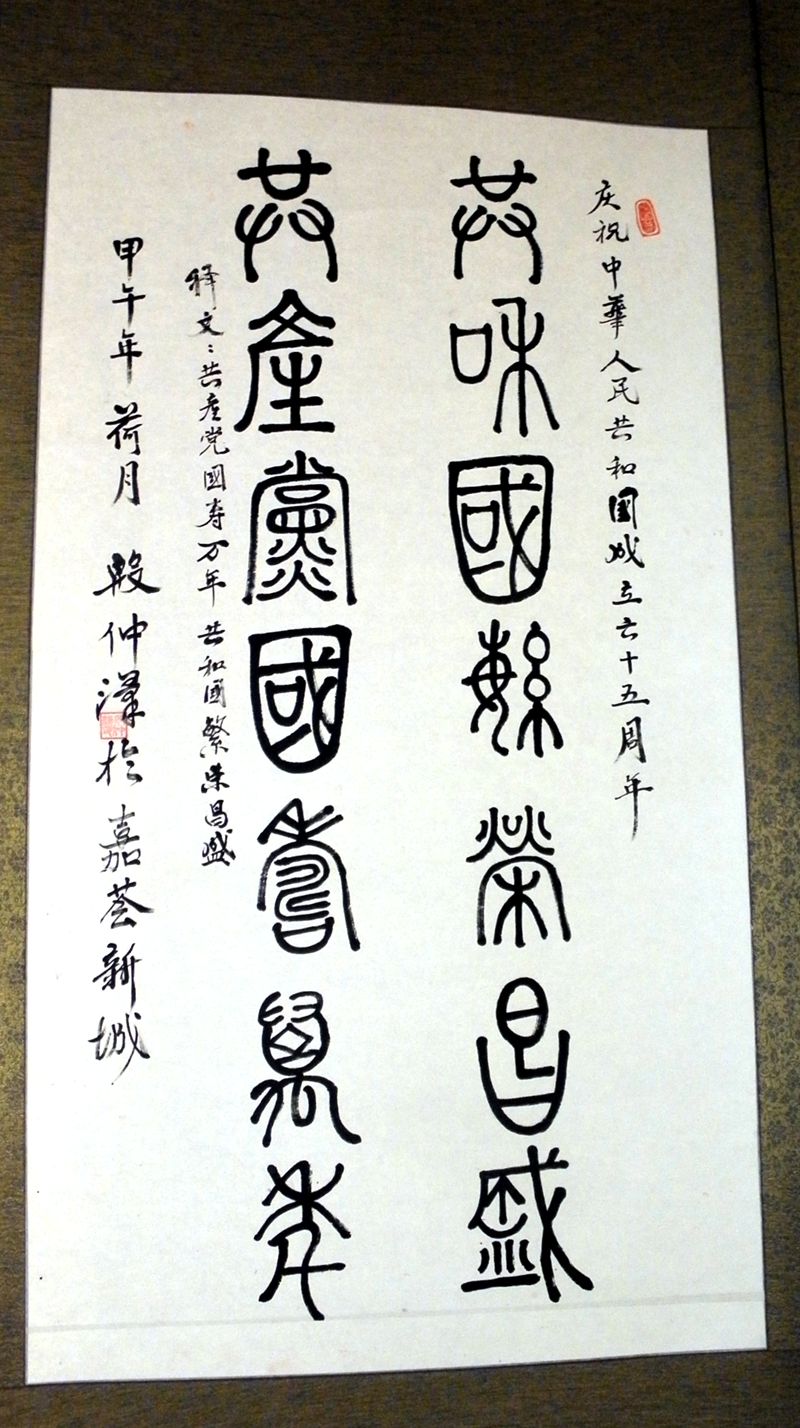 庆祝中華人民共和國成立六十五周年
共和國緐榮昌盛
共產黨國壽萬年
释文：共產党國寿万年 共和國繁荣昌盛
甲午年荷月 殷仲漢於嘉荟新城